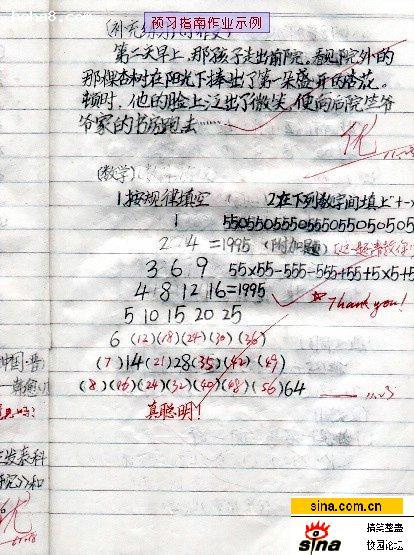 预习指南作业示例
第二天早上，那孩子走出前院。看见院外的
那棵杏树在阳光下捧出了第一朵盛开的杏花。
顿时，他的脸上泛出了微笑，便向后院竺爷
爷家的书房跑去……
优
(数学)
1.按规律填空 2.在下列数字间填上"+-×
1 55055055505550550505505
2 4 =1995 (附加题)
3 6 9 55×55-555-555+55+5×5+5
4 8 12 16 =1995 Thank you!
5 10 15 20 25
6 (12)(18)(24)(30)(36)
(7)14(21)28(35)(42)(49)
(8)(16)(24)(32)(40)(48)(56)64
11.23
真聪明!
优
sina.com.cn
sina 搞笑整蛊
校园论坛